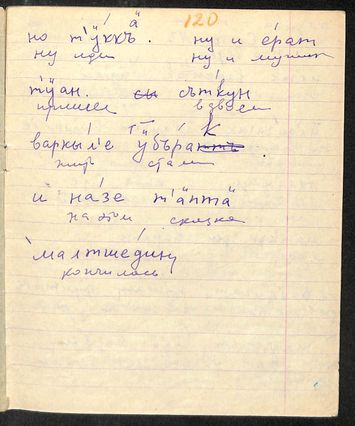 120
но тӱккъ. ну и е́рат
ну иди ну и мужик
тӱан. сы съ́ткун
пришел взвоем
варкыле ӱбъра́к
жить стали
и на́зе тӓптӓ
на этом сказка
малтше́дину
кончилась